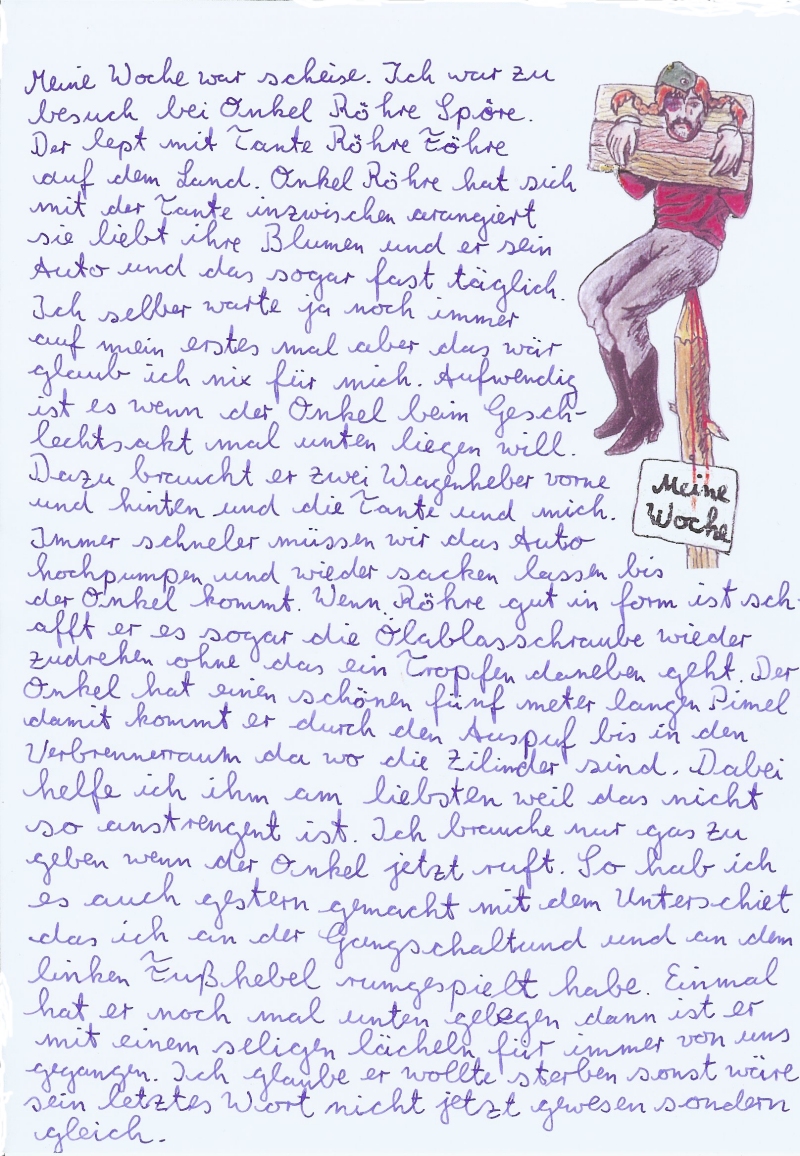 Meine Woche war scheise. Ich war zu
besuch bei Onkel Röhre Spöre.
Der lept mit Tante Röhre Föhre
auf dem Land. Onkel Röhre hat sich
mit der Tante inzwischen arangiert
sie liebt ihre Blumen und er sein
Auto und das sogar fast täglich.
Ich selber warte ja noch immer
auf mein erstes mal aber das wär
glaub ich nix für mich. Aufwendig
ist es wenn der Onkel beim Gesch-
lechtsakt mal unten liegen will.
Dazu braucht er zwei Wagenheber vorne
und hinten und die Tante und mich.
Immer schneler müssen wir das Auto
hochpumpen und wieder sacken lassen bis
der Onkel kommt. Wenn Röhre gut in form ist sch-
afft er es sogar die Ölablasschraube wieder
zudrehen ohne das ein Tropfen daneben geht. Der
Onkel hat einen schönen fünf meter langen Pimel
damit kommt er durch den Auspuf bis in den
Verbrennerraum da wo die Zilinder sind. Dabei
helfe ich ihm am liebsten weil das nicht
so anstrengent ist. Ich brauche nur gas zu
geben wenn der Onkel jetzt ruft. So hab ich
es auch gestern gemacht mit dem Unterschiet
das ich an der Gangschaltund und an dem
linken Fußhebel rumgespielt habe. Einmal
hat er noch mal unten gelegen dann ist er
mit einem seligen lächeln für immer von uns
gegangen. Ich glaube er wollte sterben sonst wäre
sein letztes Wort nicht jetzt gewesen sondern
gleich.
Meine
Woche